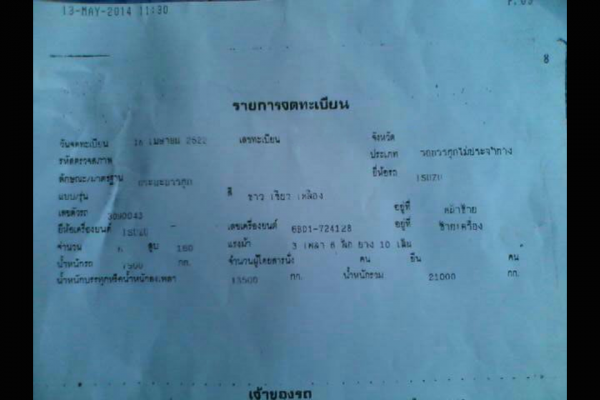 13-MAY-2014 11:30
8
รายการจดทะเบียน
วันจดทะเบียน 2522 เลขทะเบียน จังหวัด
รหัสตรวจสภาพ ประเภท
ลักษณะ/มาตรฐาน ยี่ห้อรถ ISUZU
แบบ/รุ่น สี ขาว เขียว เหลือง
เลขตัวรถ 3090043 อยู่ที่ หน้าซ้าย
ยี่ห้อเครื่องยนต์ ISUZU เลขเครื่องยนต์ 6BD1-724128 อยู่ที่ ซ้ายเครื่อง
จำนวน 6 สูบ 160 แรงม้า 3 เพลา 6 ล้อ ยาง 10 เส้น
น้ำหนักรถ 7500 กก. จำนวนผู้โดยสารนั่ง คน ยืน คน
น้ำหนักบรรทุกหรือน้ำหนักลงเพลา 13500 กก. น้ำหนักรวม 21000 กก.
เจ้าของรถ